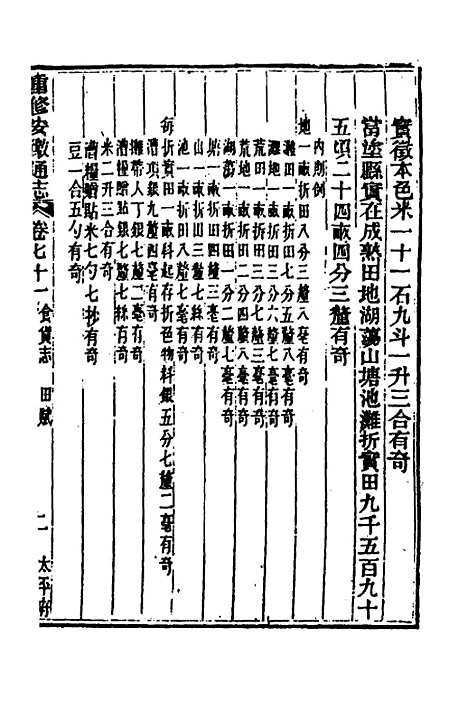 實徵本色米一十一石九斗一升三合有奇
當塗縣實在成熟田地湖蕩山塘池灘折實田九千五百九十
五頃二十四畝四分三釐有奇
內則例
地一畝折田八分三釐八毫有奇
灘田一畝折田七分五釐八毫有奇
灘地一畝折田三分六釐七毫有奇
荒田一畝折田三分七釐三毫有奇
荒地一畝折田二分七釐八毫有奇
湖蕩一畝折田一分二釐七毫有奇
塘一畝折田四釐三毫有奇
山一畝折田三釐七毫有奇
池一畝折田八釐七毫有奇
每折實田一畝科起存折色物料銀五分七釐二毫有奇
漕項銀九釐四毫有奇
攤帶人丁銀七釐二毫有奇
漕糧贈貼銀七釐七絲有奇
米二升三合有奇
漕糧贈貼米七勺七抄有奇
豆一合五勺有奇
重修安徽通志 卷七十一 食貨志 田賦 二 太平府